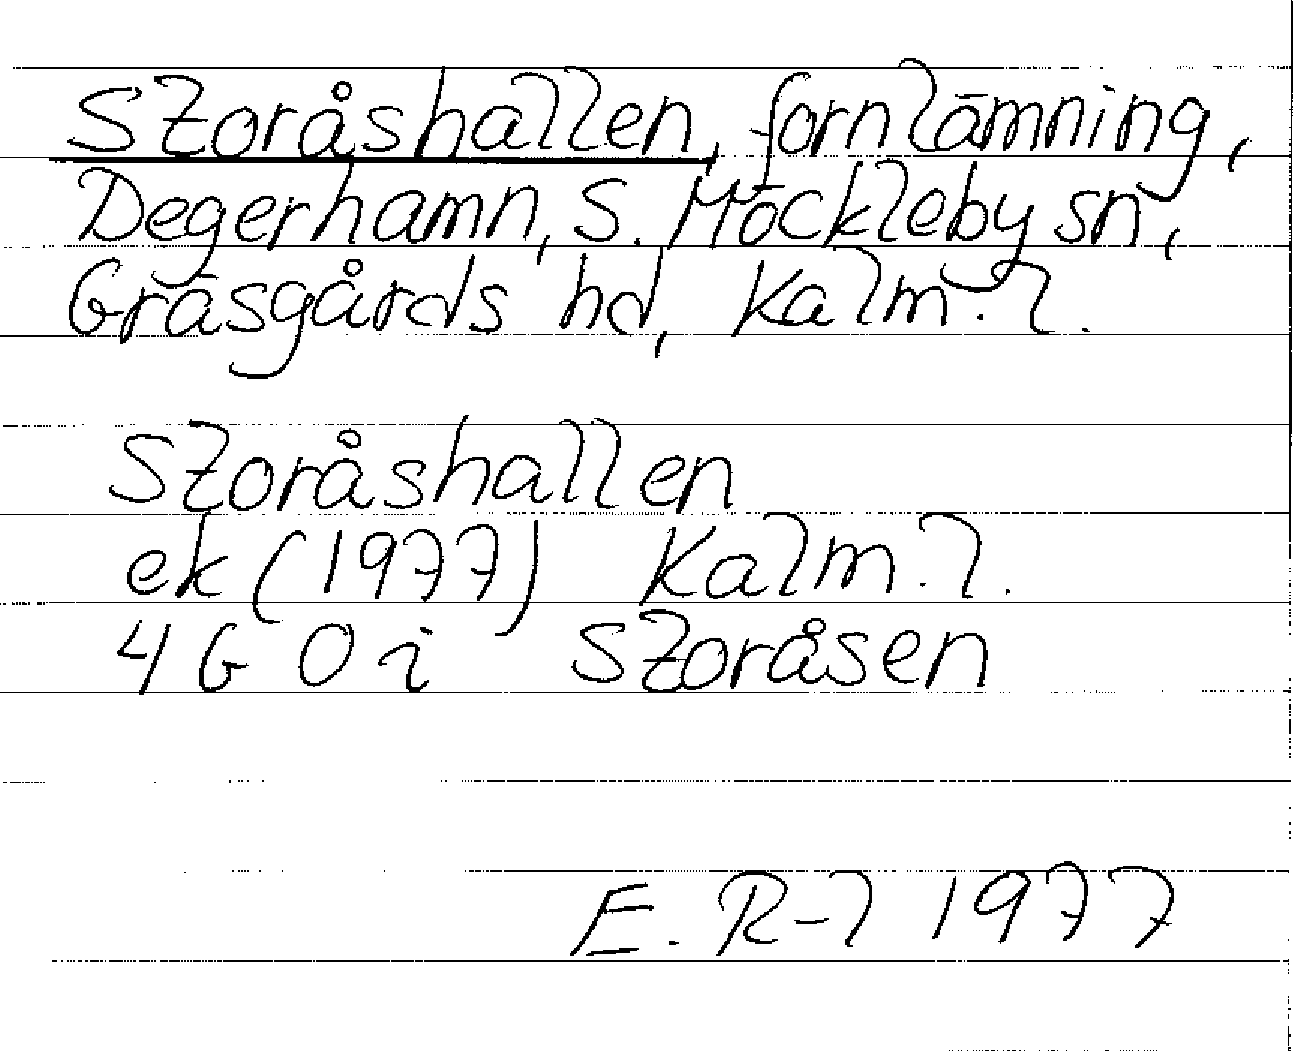 Sloråshallen, fornlämning,
Degerhamn, S. Möckleby sn,
Gräsgårds hd, Kalm. l.
Sloråshallen
ek (1977) Kalm. l.
4 G 0 i Sloråsen
E. R-l 1977